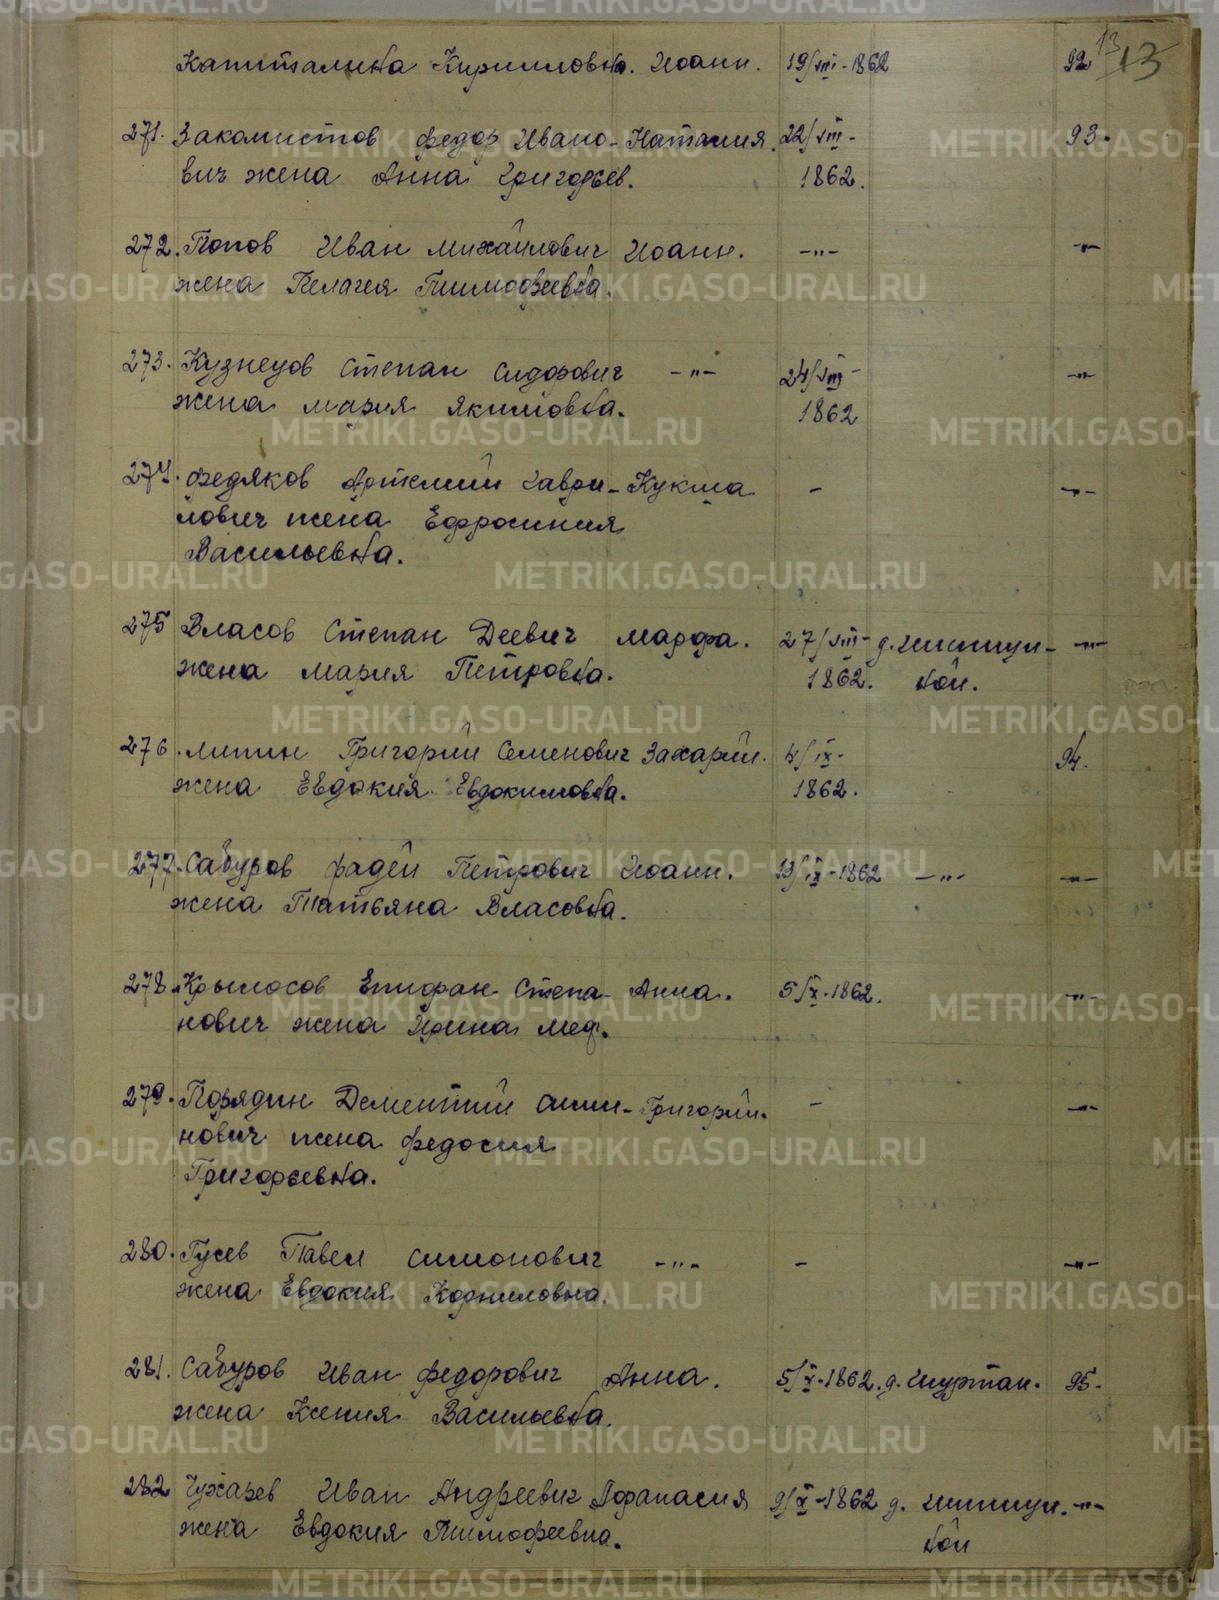 13 13
Капиталина Кирилловна. Иоанн. 19/VIII-1862 92
271. Закомистов Федор Ивано- Наталия. 22/VIII- 93.
вич жена Анна Григорьев. 1862.
272. Попов Иван Михайлович Иоанн. -"- -"-
жена Пелагея Тимофеевна.
273. Кузнецов Степан Сидорович -"- 24/VIII- -"-
жена Мария Якимовна. 1862
274. Федяков Артемий Гаври- Кукша - -"-
лович жена Ефросиния
Васильевна.
275 Власов Степан Деевич Марфа. 27/VIII- д. -"-
жена Мария Петровна. 1862. бой.
276. Липин Григорий Семенович Захарий. 4/IX- 94.
жена Евдокия Евдокимовна. 1862.
277. Сабуров Фадей Петрович Иоанн. 13/IX-1862 -"- -"-
жена Татьяна Власовна.
278. Крылосов Епифан Степа- Анна. 5/X-1862. -"-
нович жена Ирина Меф.
279. Порядин Дементий Анти- Григорий. - -"-
нович жена Федосия
Григорьевна.
280. Гусев Павел Симонович -"- - -"-
жена Евдокия Корниловна.
281. Сабуров Иван Федорович Анна. 5/X-1862. д. Шуртан. 95.
жена Ксения Васильевна.
282 Чухарев Иван Андреевич Афанасия 9/X-1862 д. -"-
жена Евдокия Тимофеевна. бой
METRIKI.GASO-URAL.RU